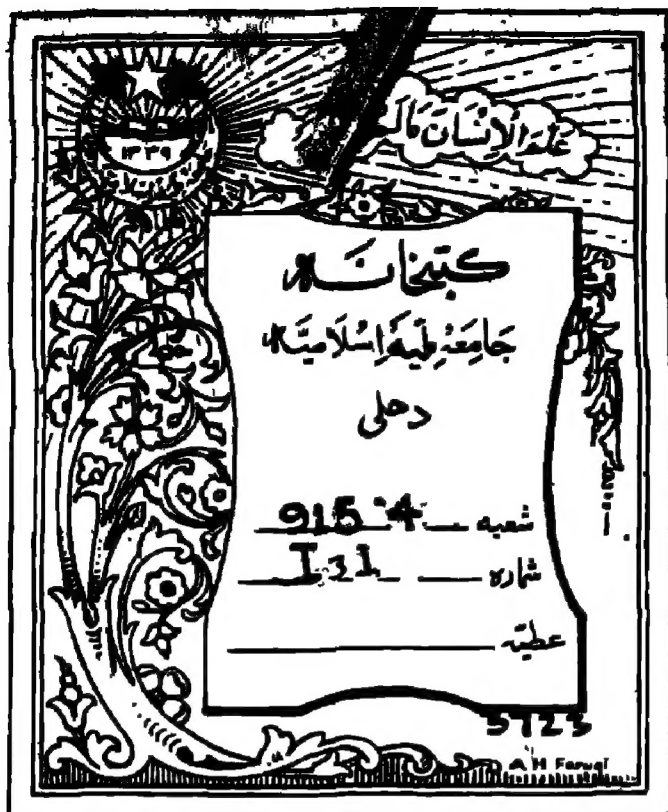 ۱۳۳۹
عَلَّمَ الْاِنْسَانَ مَا لَمْ
کتبخانہ
جَامِعَہ مِلّیَہ اِسْلَامِیَہ
دھلی
شعبہ 915.4
شمارہ I31
عطیّہ
5723
A H Faruqi